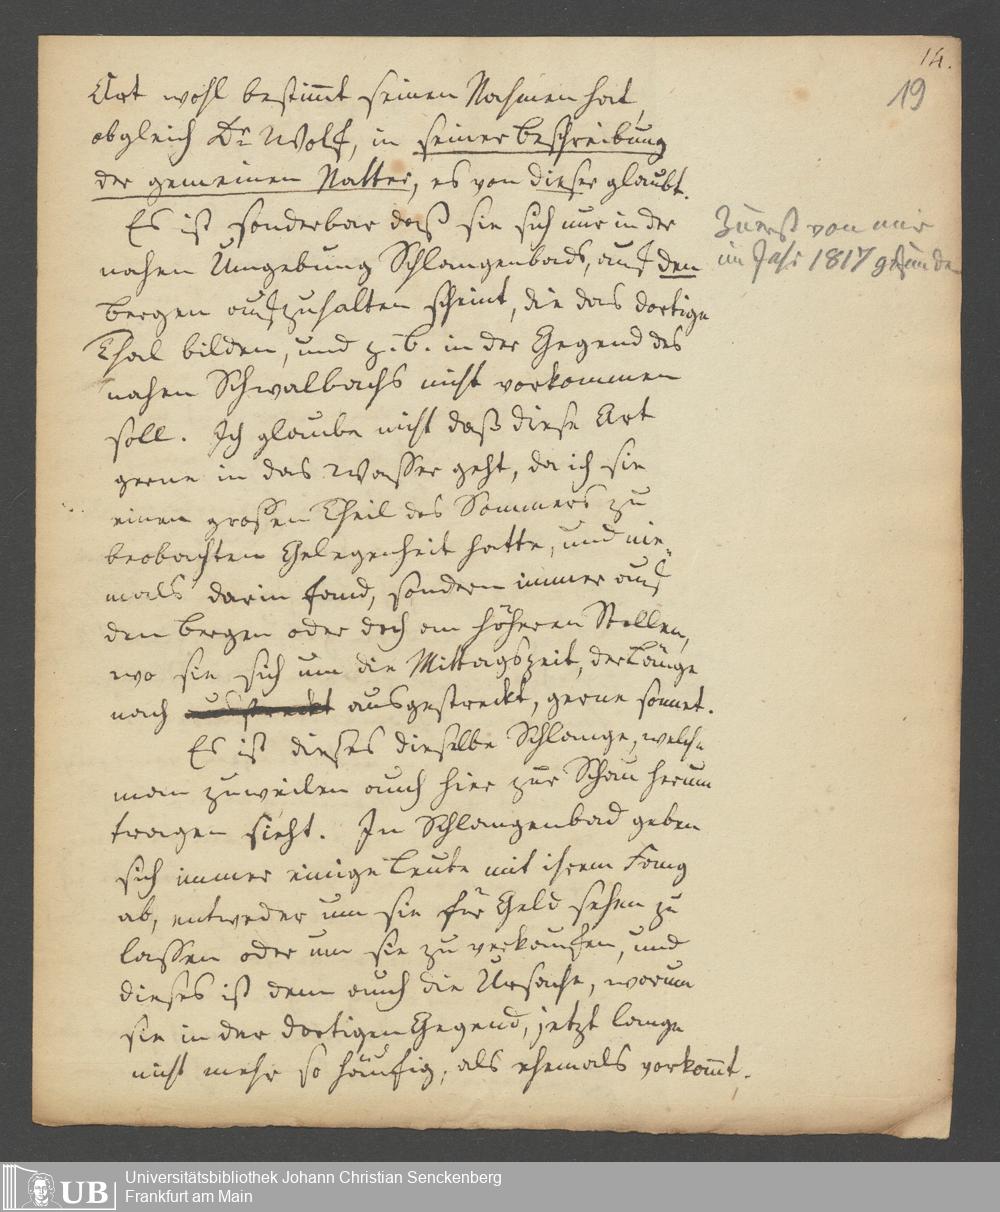 14.
19
Art wohl bestim̅t seinen Nahmen hat,
obgleich Dr. Wolf, in seiner Beschreibung
der gemeinen Natter, es von dieser glaubt.
Es ist sonderbar daß sie sich nur in der
nahen Umgebung Schlangenbads, auf den
Bergen aufzuhalten scheint, die das dortige
Thal bilden, und z. B. in der Gegend des
nahen Schwalbachs nicht vorkommen
soll. Ich glaube nicht daß diese Art
gerne in das Wasser geht, da ich sie
einen grossen Theil des Sommers zu
beobachten Gelegenheit hatte, und nie-
mals darin fand, sondern immer auf
den Bergen oder doch an höheren Stellen,
wo sie sich um die Mittagszeit, der Länge
nach ausgestreckt, gerne sonnet.
Es ist dieses dieselbe Schlange, welche
man zuweilen auch hier zur Schau herum
tragen sieht. In Schlangenbad geben
sich immer einige Leute mit ihrem Fang
ab, entweder um sie für Geld sehen zu
lassen oder um sie zu verkaufen, und
dieses ist denn auch die Ursache, warum
sie in der dortigen Gegend, jetzt lange
nicht mehr so häufig, als ehemals vorkom̅t.
Zuerst von mir
im Jahr 1817 gefunden
Universitätsbibliothek Johann Christian Senckenberg
Frankfurt am Main
UB